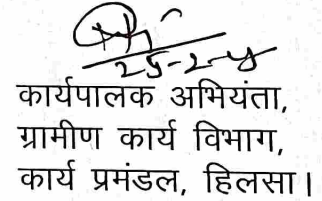 25-2-
कार्यपालक अभियंता,
ग्रामीण कार्य विभाग,
कार्य प्रमंडल, हिलसा।